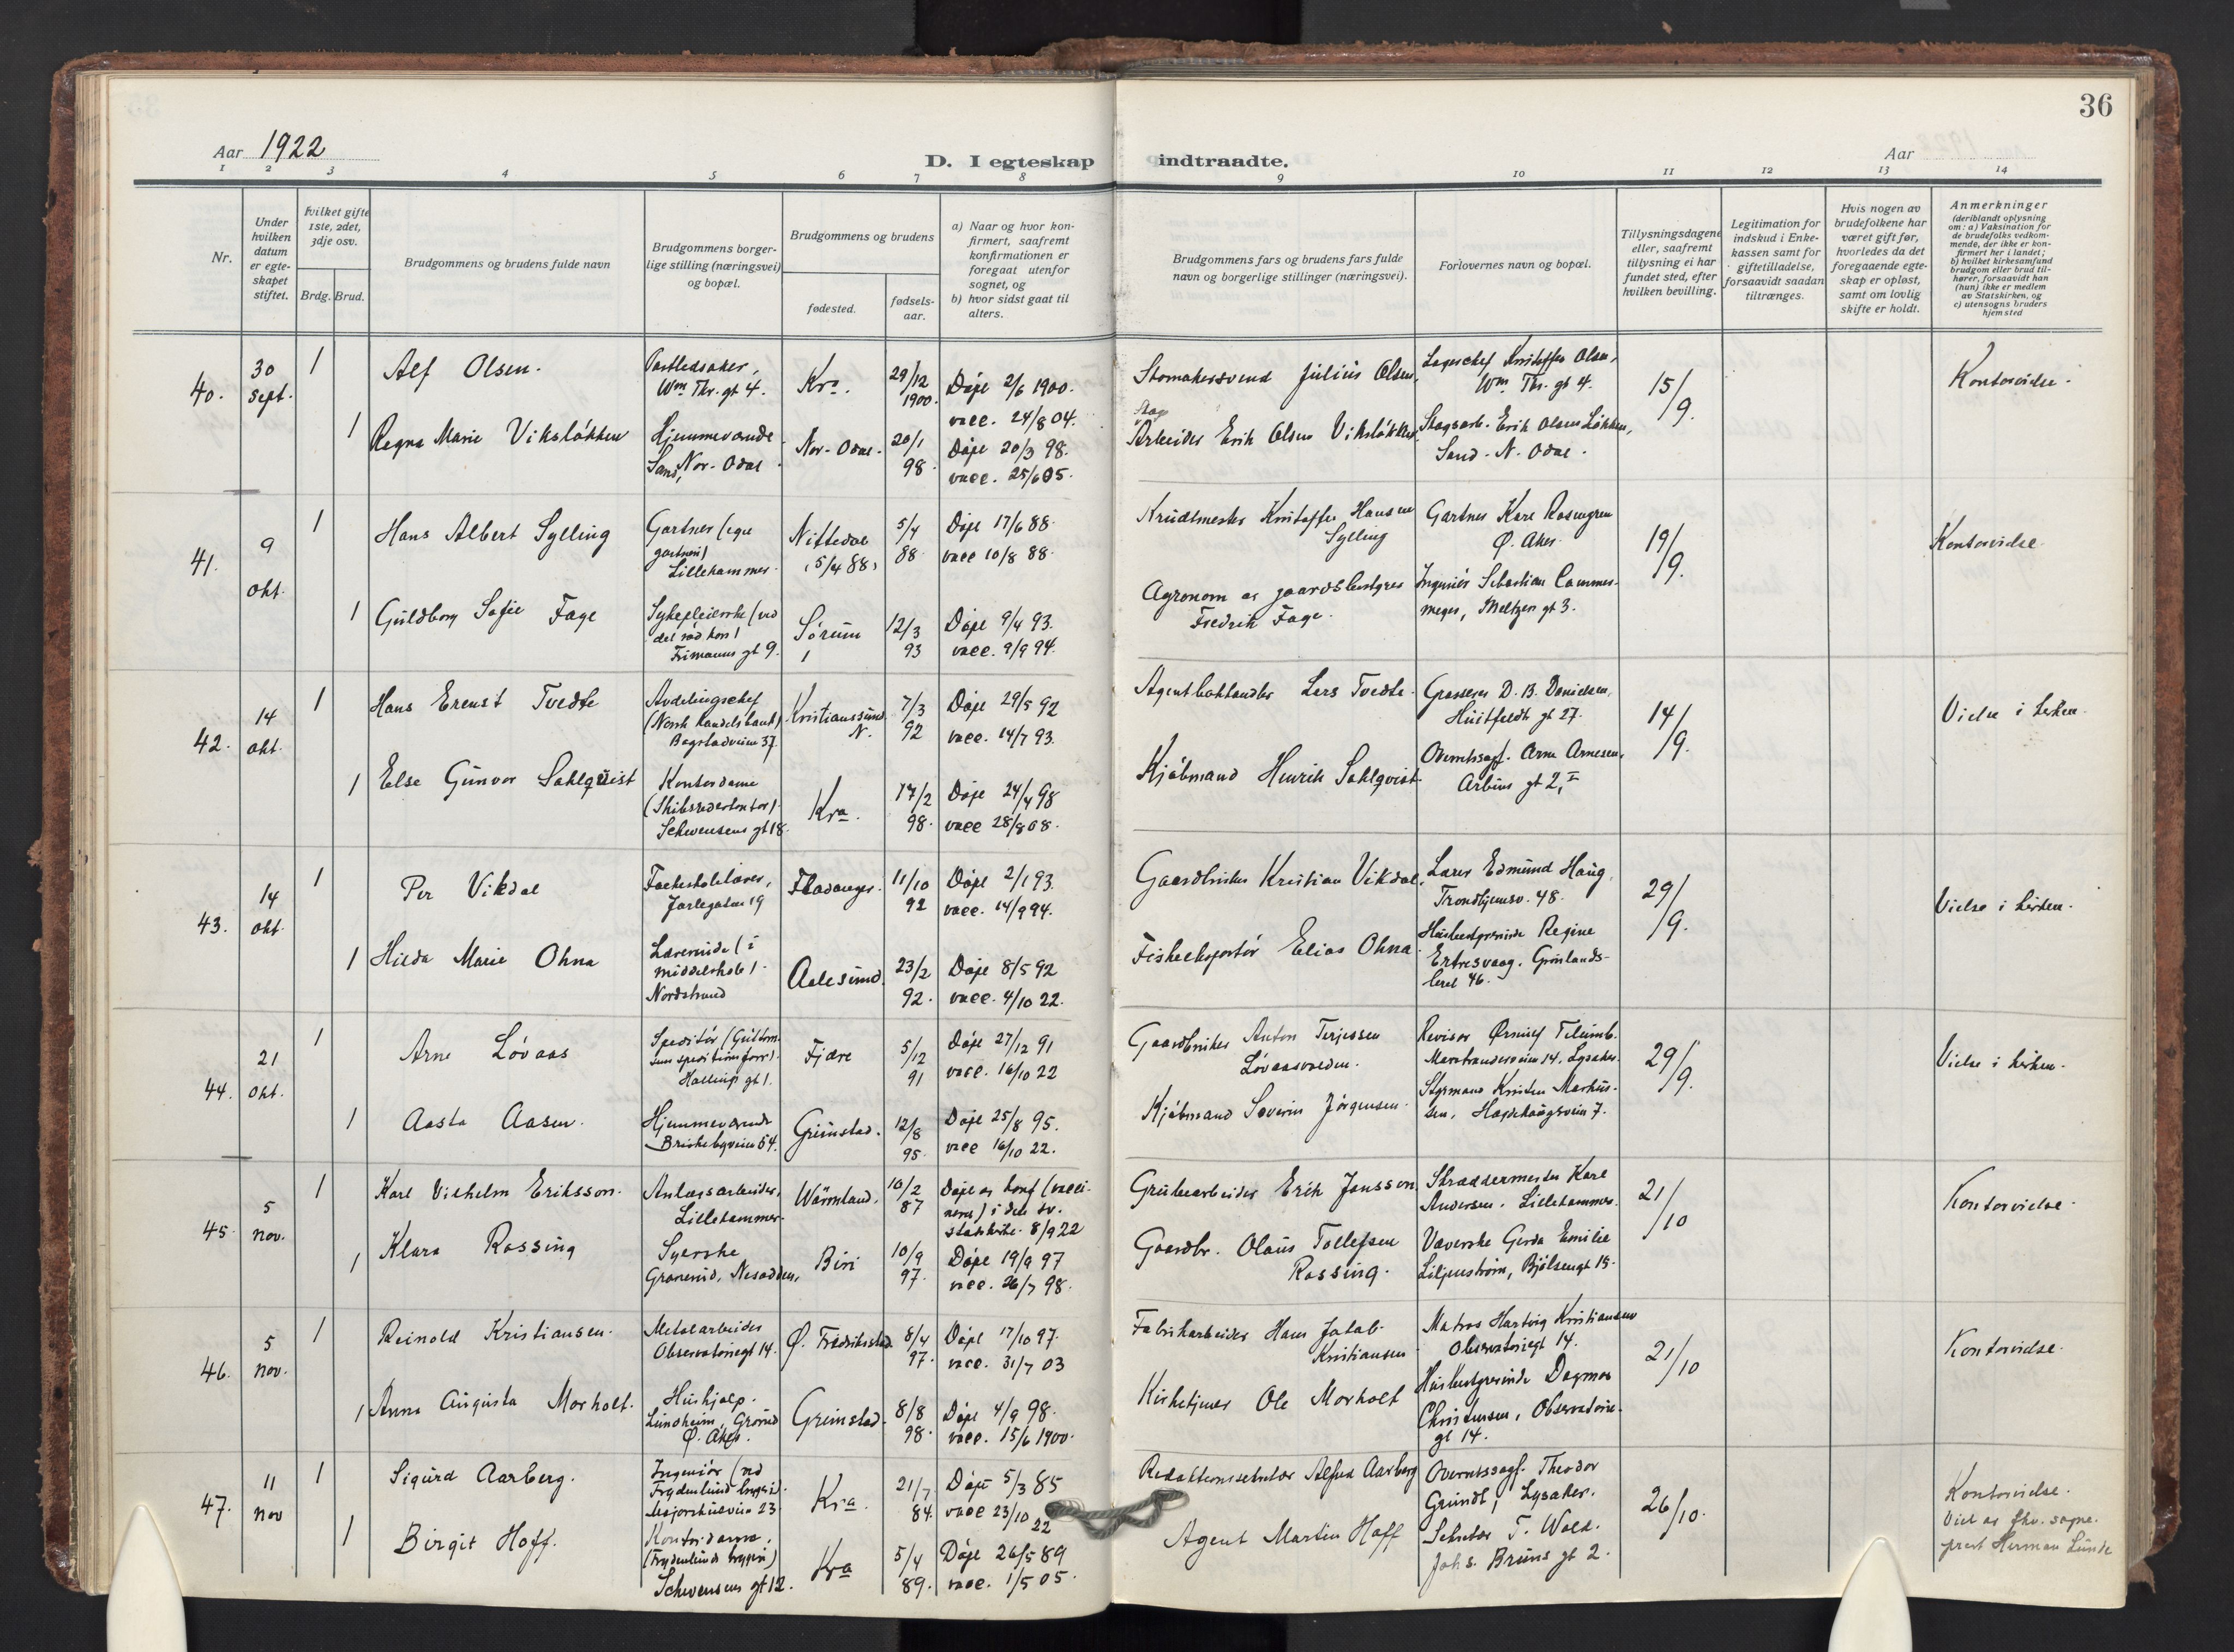 36
Aar 1922
D. I egteskap indtraadte.
Aar
1 2 3 4 5 6 7 8 9 10 11 12 13 14
Nr.
Under hvilken datum er egteskapet stiftet.
Hvilket gifte 1ste, 2det, 3dje osv.
Brdg. Brud.
Brudgommens og brudens fulde navn
Brudgommens borgerlige stilling (næringsvei) og bopæl.
Brudgommens og brudens
fødested.
fødselsaar.
a) Naar og hvor konfirmert, saafremt konfirmationen er foregaat utenfor sognet, og
b) hvor sidst gaat til alters.
Brudgommens fars og brudens fars fulde navn og borgerlige stillinger (næringsvei).
Forlovernes navn og bopæl.
Tillysningsdagene eller, saafremt tillysning ei har fundet sted, efter hvilken bevilling.
Legitimation for indskud i Enkekassen samt for giftetilladelse, forsaavidt saadan tiltrænges.
Hvis nogen av brudefolkene har været gift før, hvorledes da det foregaaende egteskap er opløst, samt om lovlig skifte er holdt.
Anmerkninger
(deriblandt oplysning om: a) Vaksination for de brudefolks vedkommende, der ikke er konfirmert her i landet;
b) hvilket kirkesamfund brudgom eller brud tilhører, forsaavidt han (hun) ikke er medlem av Statskirken, og
c) utensogns bruders hjemsted
40. 30 Sept. 1 Alf Olsen.
Wm Thr. gt 4.
Kra. 29/12 1900.
Døpt 2/6 1900.
vacc. 24/8 04.
Julius Olsen,
Kristoffer Olsen,
Wm. Thr. gt 4.
15/9.
Kontorvielse.
1 Ragna Marie Viksløkken
Hjemmeværende
Sand, Nor-Odal
Nor-Odal. 20/1 98.
Døpt 20/3 98.
vacc. 25/6 05.
Arbeider Erik Olsen Viksløkken
Skogsarb. Erik Olsen Løkken,
Sand. N. Odal.
41. 9 okt. 1 Hans Albert Sylling
Gartner (eget
gartneri)
Lillehammer.
Nittedal
(5/4 88)
5/4 88.
Døpt 17/6 88.
vacc 10/8 88.
Krudtmester Kristoffer Hansen
Sylling
Gartner Karl Rosengren
Ø. Aker.
19/9.
Kontorvielse.
1 Guldborg Sofie Fage
Sykepleierske (ved
det røde kors)
Frimanns gt 9.
Sørum
12/3 93
Døpt 9/4 93.
vacc. 9/9 94.
Agronom og gaardsbestyrer
Fredrik Fage.
Ingeniør Sebastian Cammermeyer, Meltzers gt 3.
42. 14 okt. 1 Hans Ernst Tvedte
Avdelingschef
(Norsk handelsbank).
Bogstadveien 37.
Kristianssund N.
7/3 92
Døpt 29/5 92
vacc. 14/7 93.
Lars Tvedte.
Grosserer D. B. Danielsen,
Huitfeldts gt 27.
14/9.
Vielse i kirken.
1 Else Gunvor Sahlquist
Kontordame
(Skibsrederkontor).
Schwensens gt 18.
Kra.
17/2 98.
Døpt 24/4 98
vacc 28/8 08.
Kjøbmand Henrik Sahlqvist
Overretssagf. Arne Arnesen,
Arbins gt 2, I
43. 14 okt. 1 Per Vikdal
Jarlegaten 19
Fladanger. 11/10 92
Døpt 2/1 93.
vacc. 14/9 94.
Gaardbruker Kristian Vikdal,
Lærer Edmund Haug,
Trondhjemsv. 48.
29/9.
Vielse i kirken.
1 Hilda Marie Ohna
Lærerinde (i
middelskole).
Nordstrand
Aalesund.
23/2 92.
Døpt 8/5 92
vacc. 4/10 22.
Fiskeeksportør Elias Ohna
Husbestyrerinde Regine
Ertresvaag. Grønlandsleret 46.
44. 21 okt. 1 Arne Løvaas
Speditør
Hallings gt 1.
Fjære 5/12 91
Døpt 27/12 91
vacc. 16/10 22
Gaardbruker Anton Terjessen
Løvaasvolden.
Revisor
Lysaker.
29/9.
Vielse i kirken.
1 Aasta Aasen.
Hjemmeværende
Briskebyveien 54.
Grimstad. 12/8 95.
Døpt 25/8 95.
vacc 16/10 22.
Kjøbmand Severin Jørgensen.
Styrmand Kristen Markussen, Hasdehaugsvein 7.
45. 5 nov. 1 Karl Vilhelm Eriksson.
Anlægsarbeider,
Lillehammer.
Wärmland. 10/2 87
Døpt og konf (vaccinerer) i den sv.
statskirke. 8/9 22
Grubearbeider Erik Jonsson
Skræddermester Karl
Andersen. Lillehammer.
21/10
Kontorvielse.
1 Klara Rossing
Syerske
Granerud, Nesodden,
Biri 10/9 97.
Døpt 19/9 97
vacc. 26/7 98.
Gaardbr. Olaus Tollefsen
Rossing.
Væverske Gerda Emilie
Liljenstrøm, Bjølsengt 15.
46. 5 nov. 1 Reinold Kristiansen.
Metalarbeider
Observatoriegt 14.
Ø. Fredrikstad 8/4 97.
Døpt 17/10 97.
vacc. 31/7 03
Fabrikarbeider Hans Jakob
Kristiansen
Matros Hartvig Kristiansen
Observatoriegt 14.
21/10
Kontorvielse.
1 Anna Augusta Morholt.
Hushjælp.
Lundheim, Grorud
Ø. Aker.
Grimstad. 8/8 98.
Døpt 4/9 98.
vacc. 15/6 1900.
Kirketjener Ole Morholt
Husbestyrerinde Dagmar
Christensen, Observatoriegt 14.
47. 11 nov 1 Sigurd Aarberg.
Ingeniør (ved
Frydenlund bryggeri).
Majorstuveien 23
Kra. 21/7 84.
Døpt 5/3 85
vacc 23/10 22
Redaktionssekretær Alfred Aarberg
Overretssagf. Theodor
Grundt, Lysaker.
26/10.
Kontorvielse.
Viet av fhv. sogneprest Herman Lunde
1 Birgit Hoff.
Kontordame.
(Frydenlunds bryggeri)
Schwensens gt 12.
Kra 5/4 89.
Døpt 26/5 89
vacc. 1/5 05.
Agent Martin Hoff
Sekretær T. Wold.
Johs. Bruns gt 2.